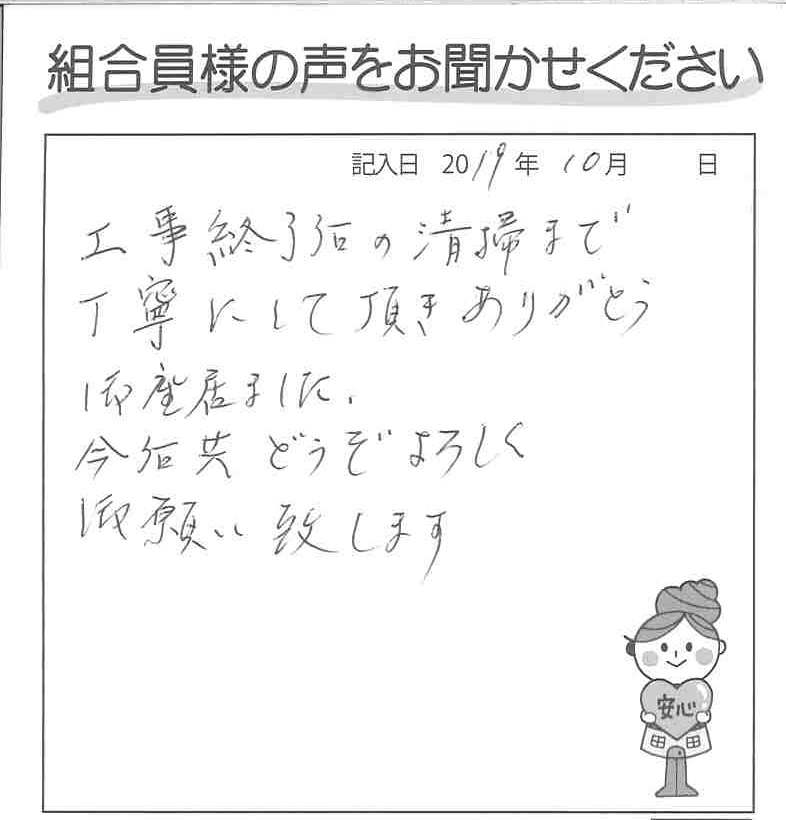 組合員様の声をお聞かせください
記入日 2019年 10月 日
工事終了后の清掃まで
丁寧にして頂きありがとう
御座居ました、
今后共どうぞよろしく
御願い致します
安心